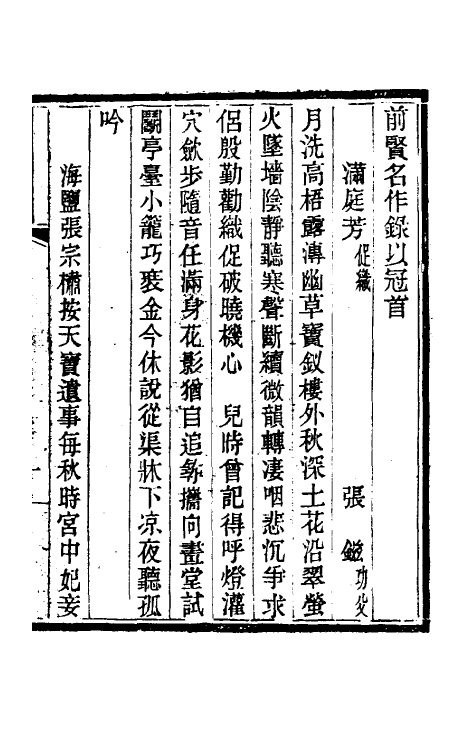 前賢名作錄以冠首
滿庭芳促織　張鎡功父
月洗高梧露漙幽草寶釵樓外秋深土花沿翠螢
火墜墻陰靜聽寒聲斷續微韻轉淒咽悲沉爭求
侶殷勤勸織促破曉機心　兒時曾記得呼燈灌
穴斂步隨音任滿身花影猶自追尋攜向畫堂試
鬭亭臺小籠巧裝金今休說從渠牀下凉夜聽孤
吟
海鹽張宗橚按天寶遺事每秋時宮中妃妾